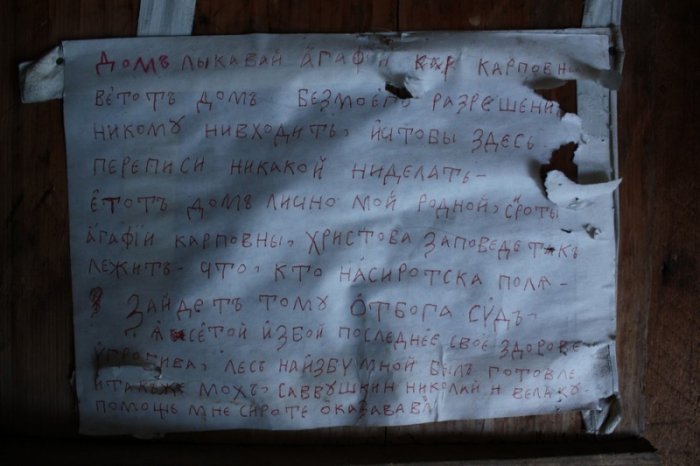 домъ лыкавай агафи карповн
ветотъ домъ безмоего разрешени
никому нивходить, ичтобы здесь
переписи никакой ниделать-
етотъ домъ лично мой родной, сироты
агафiи карповны, христова заповедь такъ
лежитъ- что, кто насиротска поля-
зайдетъ тому отбога судъ-
я сетой избой последнее свое здорове
угробива, лесъ наизбу мной былъ готовле
итакъже мохъ, саввушкин николай н велаку-
помощь мне сироте оказавав